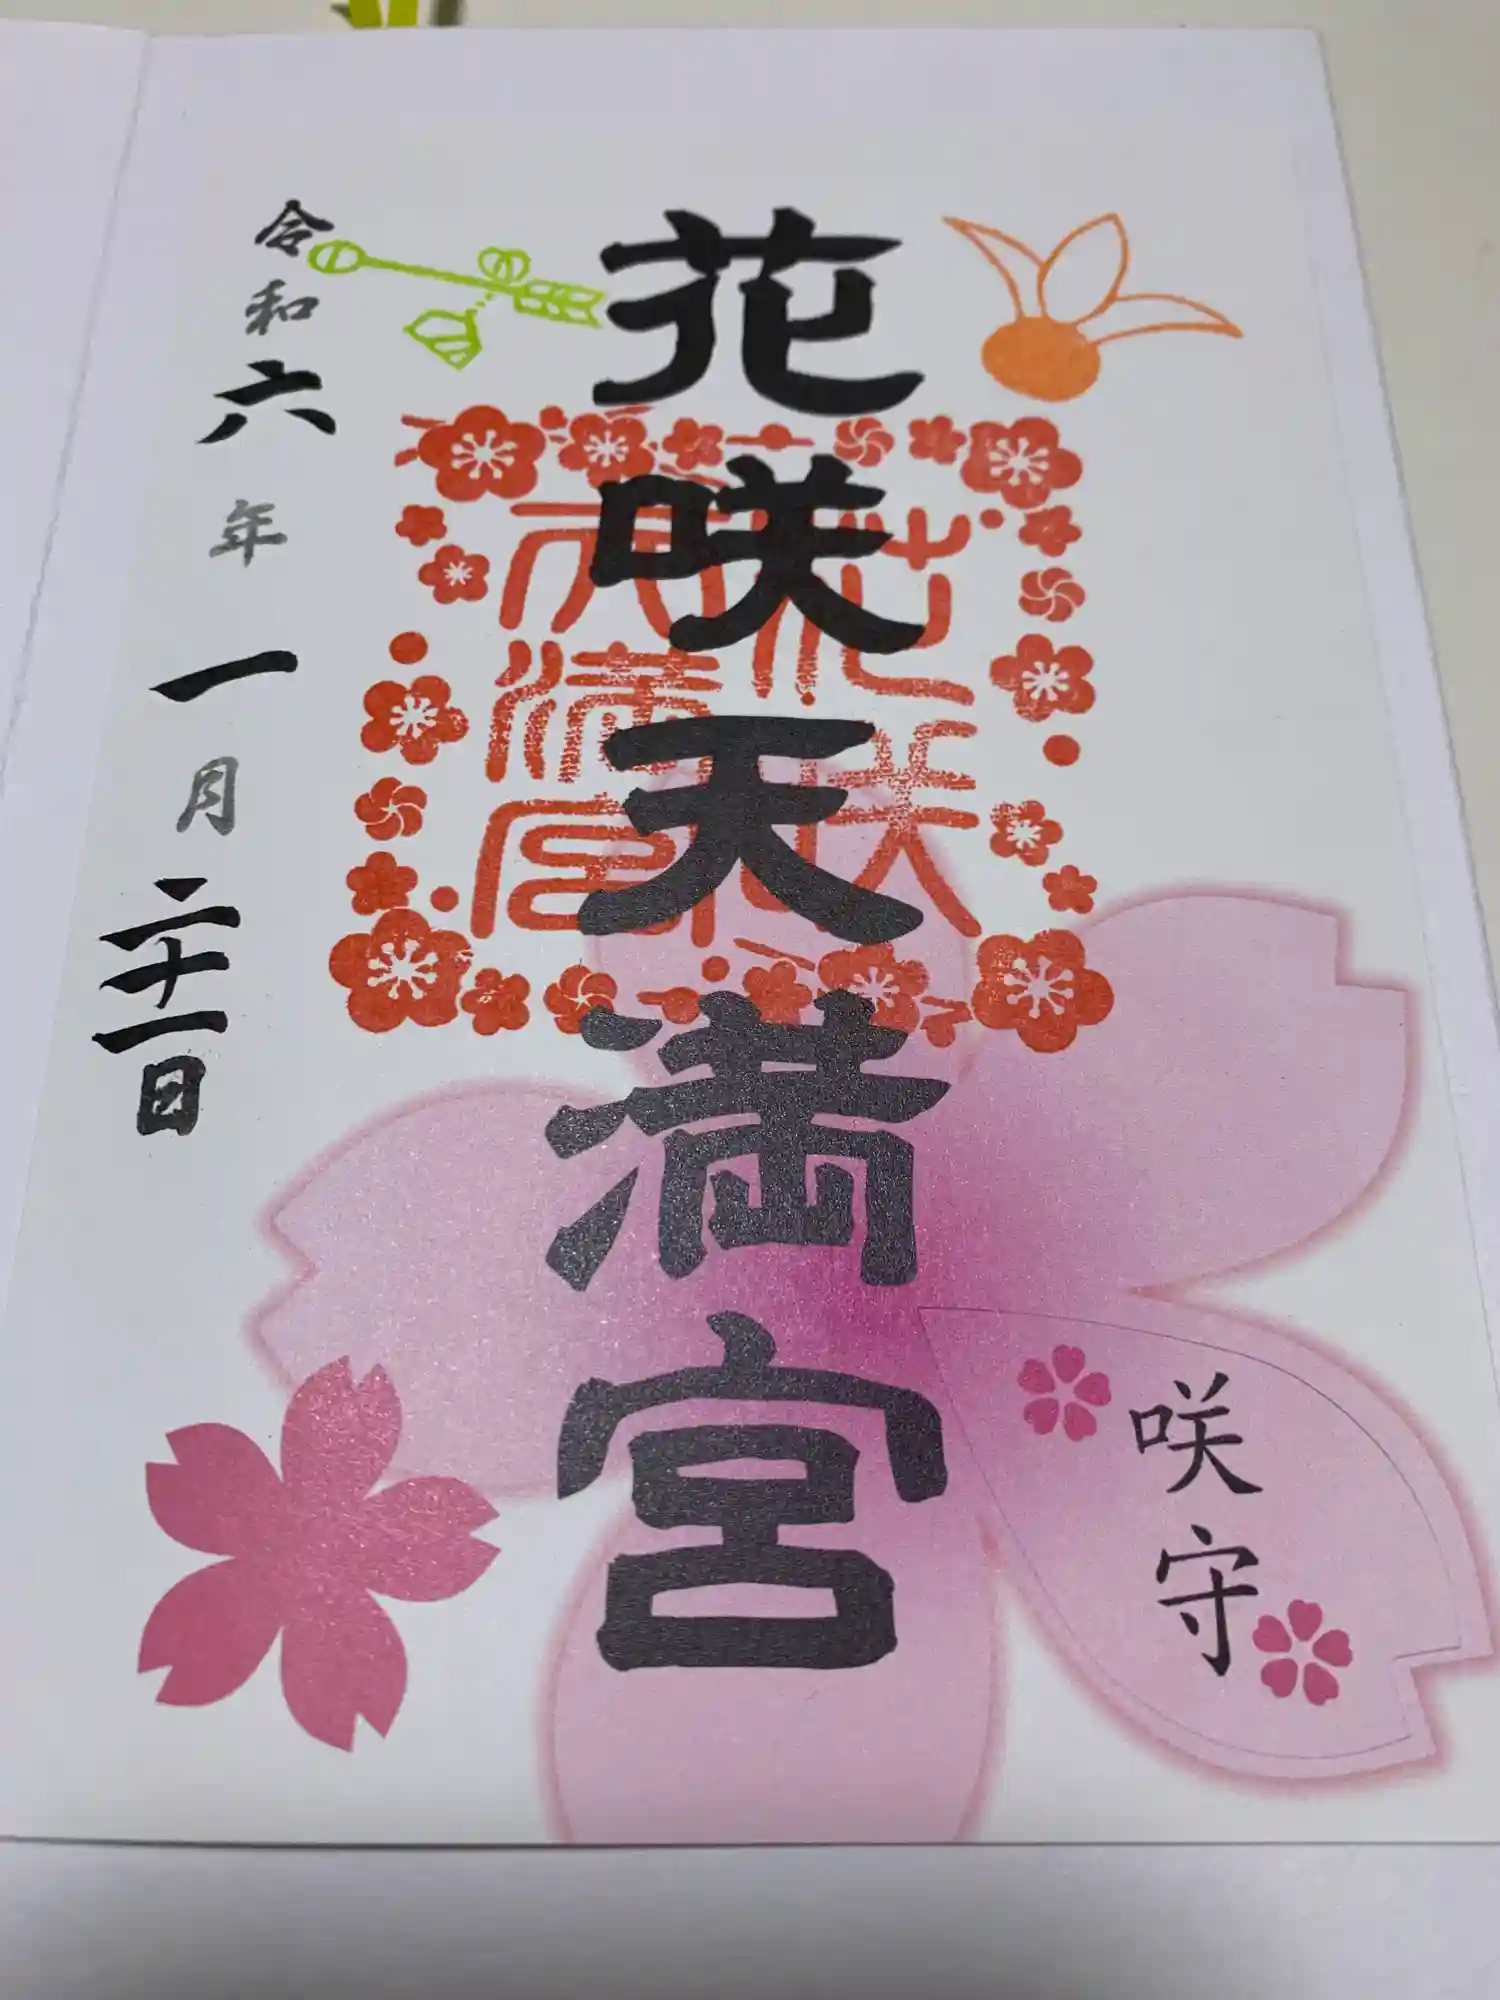 咲守
花咲天満宮
花咲
天満宮
令和六年一月二十一日